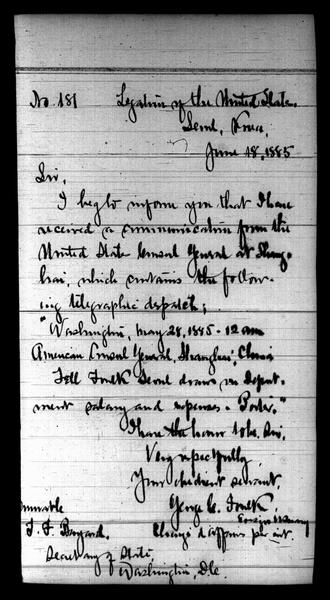 No. 181 Legation of the United States.
Seoul, Korea,
June 18, 1885
Sir,
I beg to inform you that I have
received a communication from the
United States Consul General at Shang-
hai, which contains the follow-
ing telegraphic dispatch;
"Washington, May 28, 1885 - 12 am
American Consul General, Shanghai, China
Tell Foulk Seoul draw on Depart-
ment salary and expenses - Porter."
I have the honor to be, Sir,
Very respectfully,
Your obedient servant,
George C. Foulk
Ensign U.S. Navy
Chargé d'affaires
T. F. Bayard.
Secretary of State,
Washington, D.C.